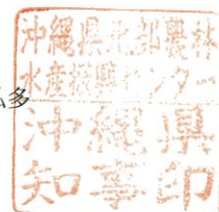 沖縄県北部農林
水産振興センター
多
沖縄県
知事印